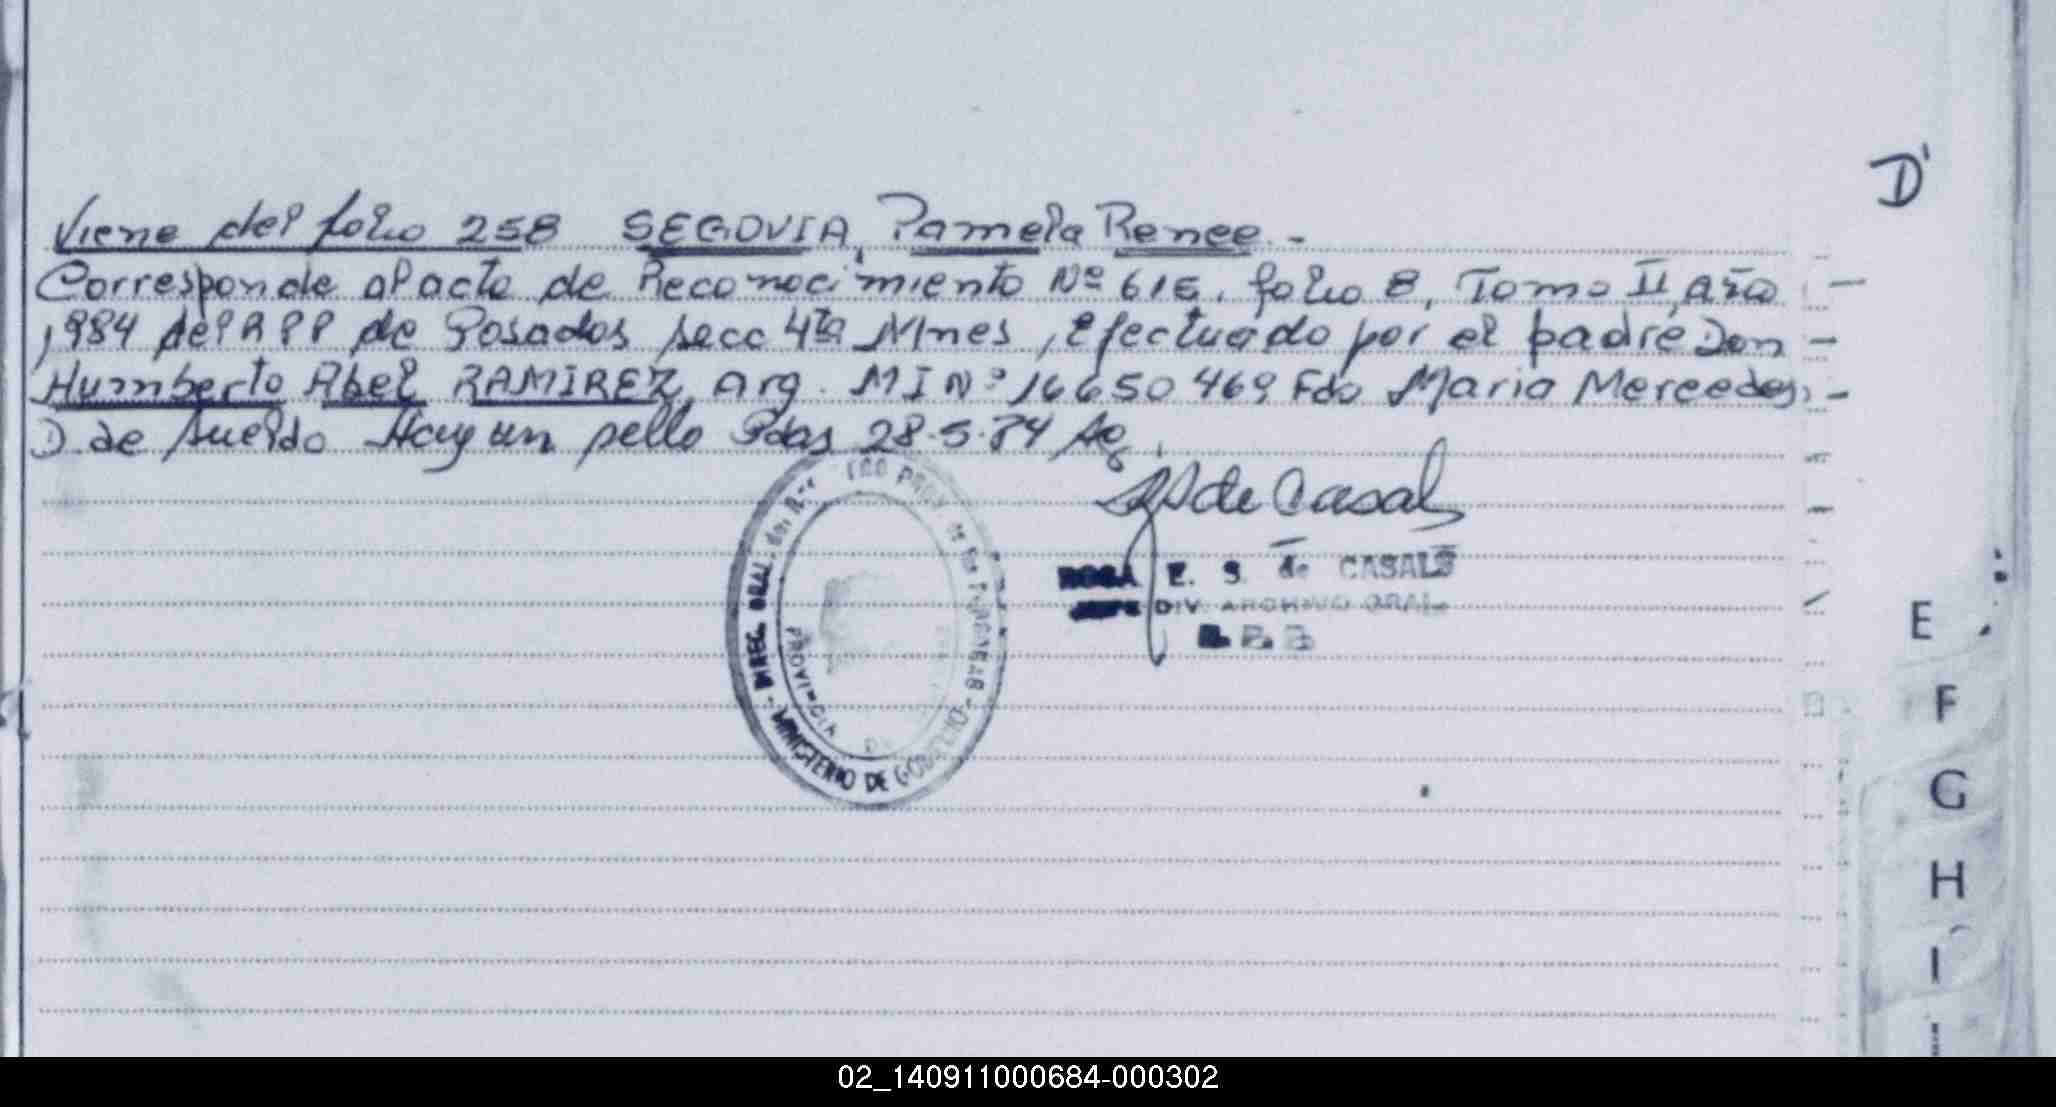 D
Viene del folio 258 SEGOVIA, Pamela Renee.-
Corresponde al acta de Reconocimiento Nº 616, folio 8, Tomo II, año -
1984 del RPP de Posadas secc 4ta Mnes, Efectuado por el padre Don -
Humberto Abel RAMIREZ, Arg. M I Nº 16650469 Fdo Maria Mercedes -
D. de Sueldo Hay un sello Pdas 28-5-84
de Casals
ROSA E. S. de CASALS
JEFE DIV. ARCHIVO GRAL.
DIREC. GRAL. del
PROVINCIA DE
MINISTERIO DE GOBIERNO
E
F
G
H
I
02_140911000684-000302